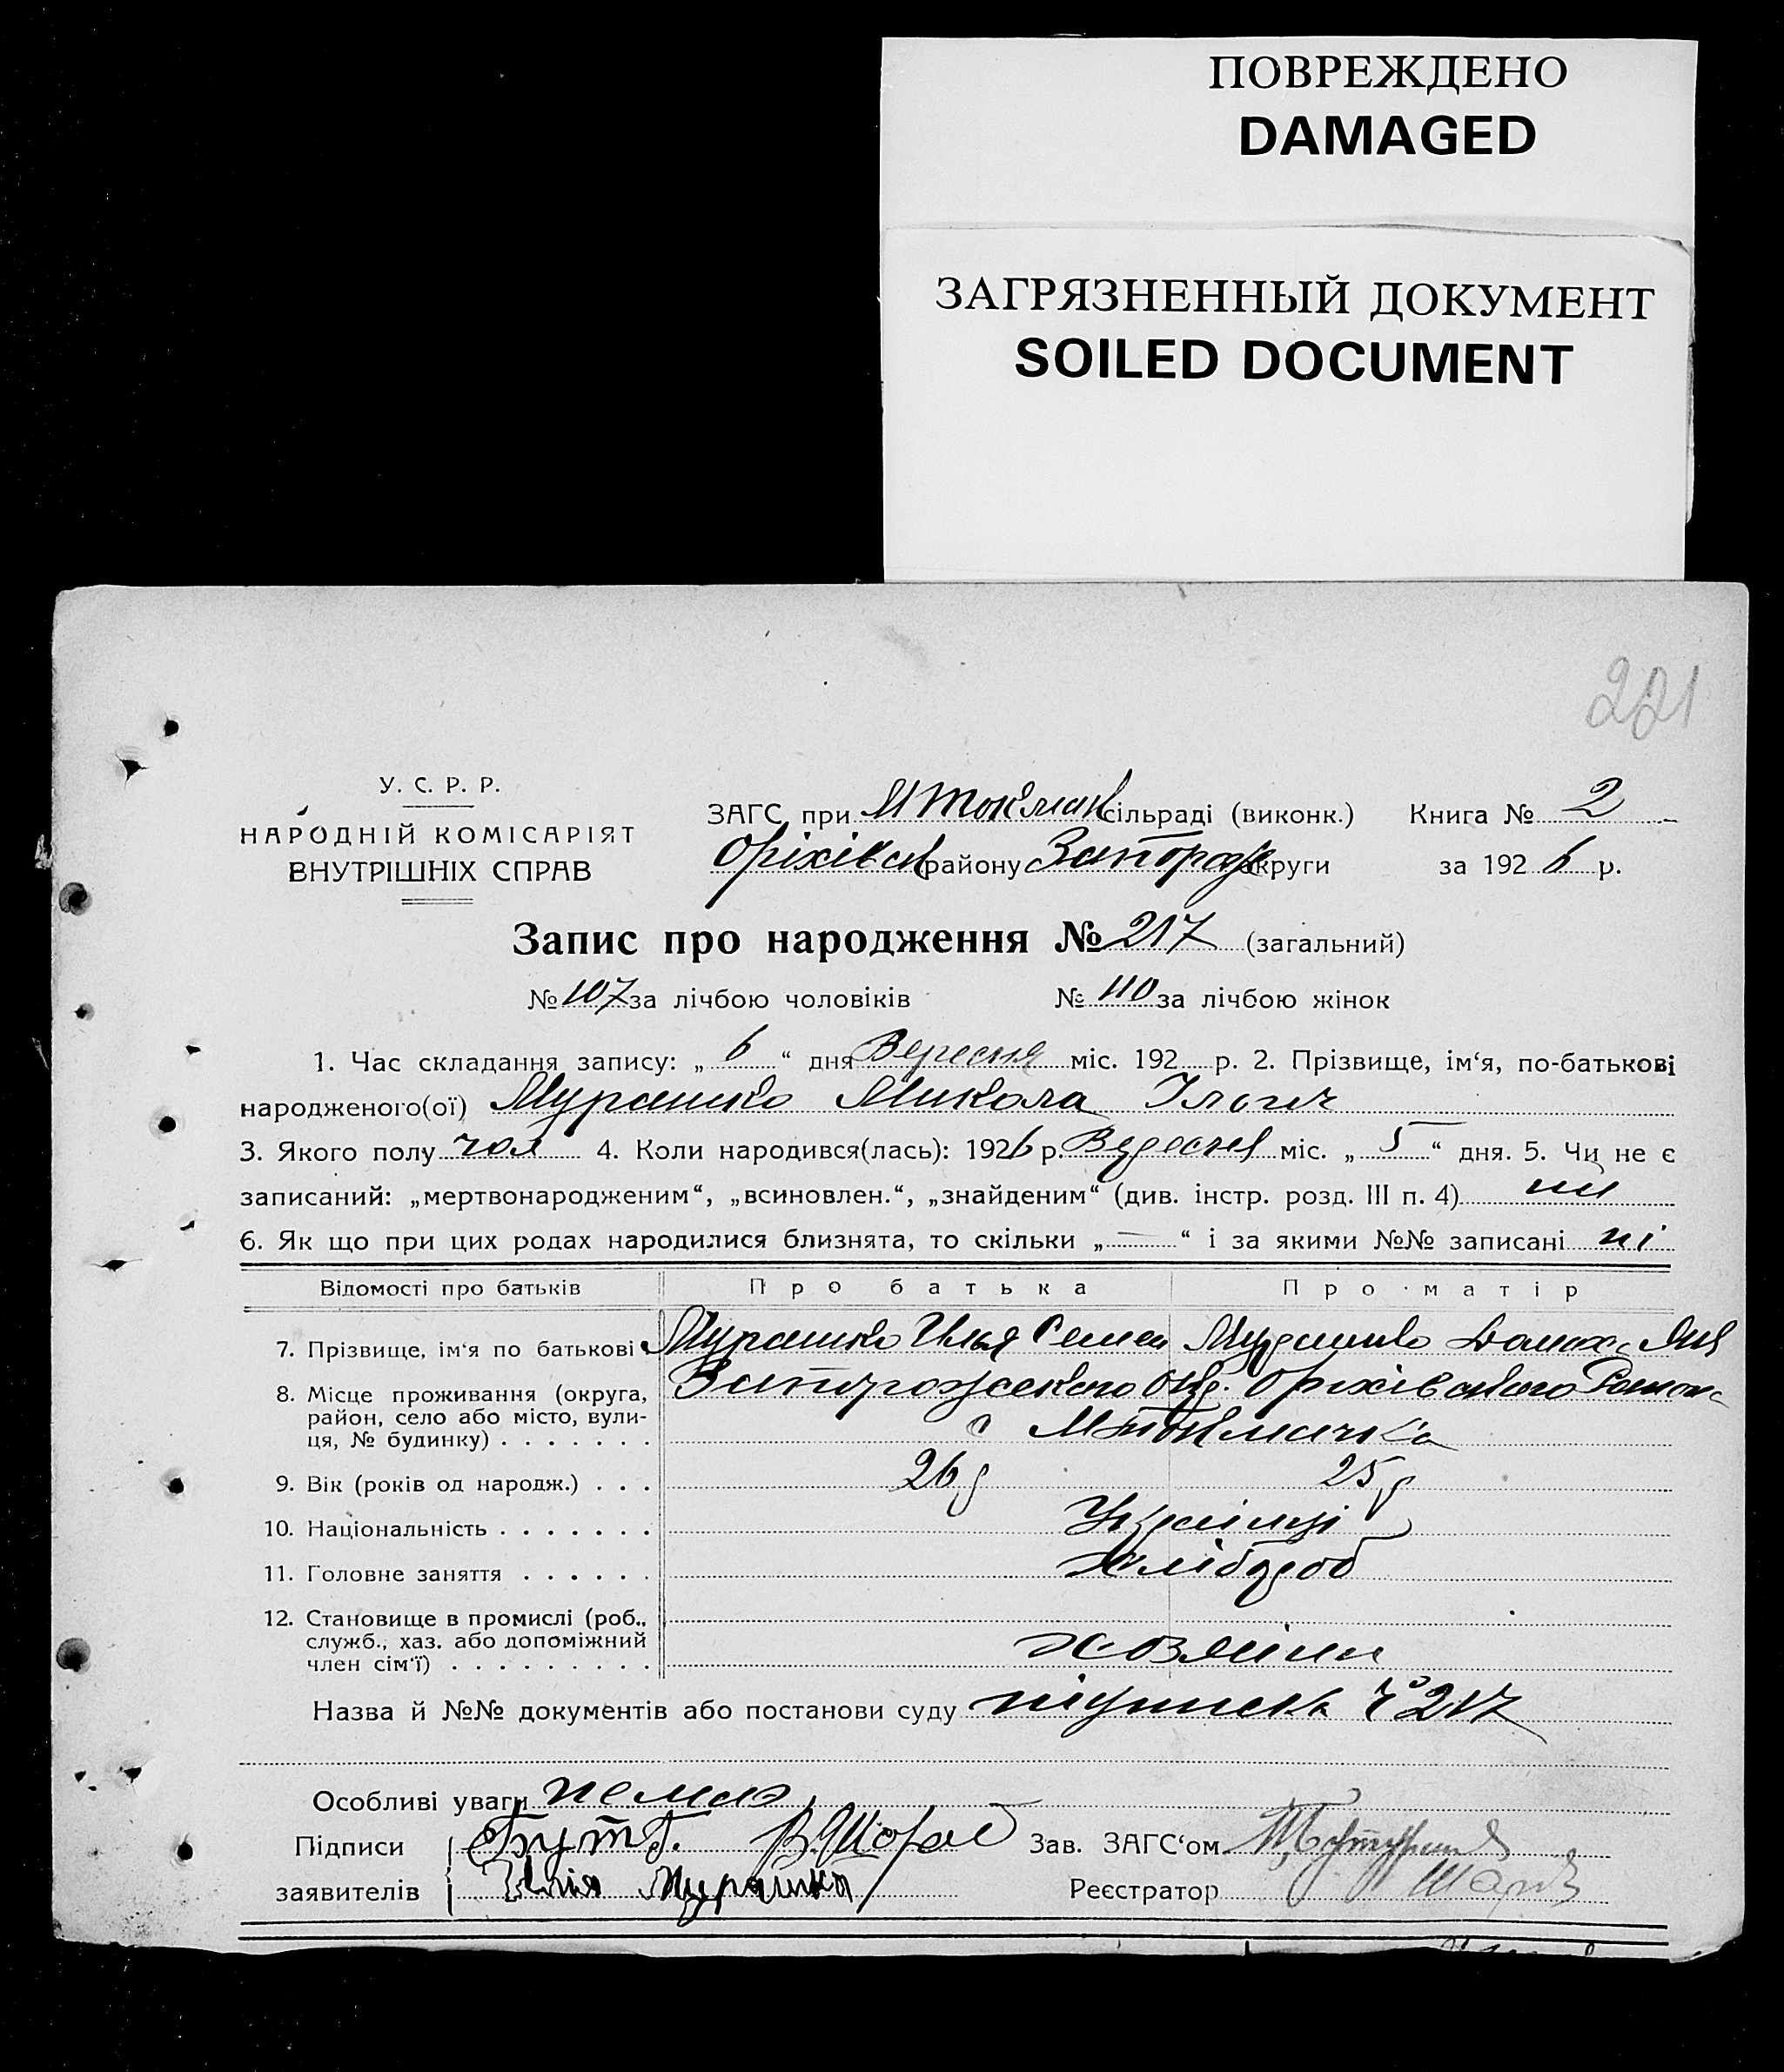 ПОВРЕЖДЕНО
DAMAGED
ЗАГРЯЗНЕННЫЙ ДОКУМЕНТ
SOILED DOCUMENT
221
У. С. Р. Р.
НАРОДНІЙ КОМІСАРІЯТ
ВНУТРІШНІХ СПРАВ
ЗАГС при М Токмац сільраді (виконк.) Книга № 2
Оріхівс району Запорож округи за 1926 р.
Запис про народження № 217 (загальний)
№ 107 за лічбою чоловіків № 110 за лічбою жінок
1. Час складання запису: „ 6 “ дня Вересня міс. 192 р. 2. Прізвище, ім‘я, по-батькові
народженого(ої) Мурашко Микола Ілліч
3. Якого полу чол 4. Коли народився(лась): 1926 р. Вересня міс. „ 5 “ дня. 5. Чи не є
записаний: „мертвонародженим“, „всиновлен.“, „знайденим“ (див. інстр. розд. III п. 4) ни
6. Як що при цих родах народилися близнята, то скільки „ — “ і за якими №№ записані ні
Відомості про батьків Про батька Про матір
7. Прізвище, ім‘я по батькові Мурашко Илья Семен Мурашко Домаха Як
8. Місце проживання (округа, Запорожського Окр. Оріхівського Району
район, село або місто, вули-
ця, № будинку) . . . . . . . с МТокмачка
9. Вік (років од народж.) . . . 26 р 25 р
10. Національність . . . . . . . Українці
11. Головне заняття . . . . . . хлібороб
12. Становище в промислі (роб.,
служб., хаз. або допоміжний
член сім‘ї) . . . . . . . . . хозяїни
Назва й №№ документів або постанови суду підписка № 217
Особливі уваги немає
Підписи Зав. ЗАГС‘ом
заявителів Илія Мурашко Реєстратор